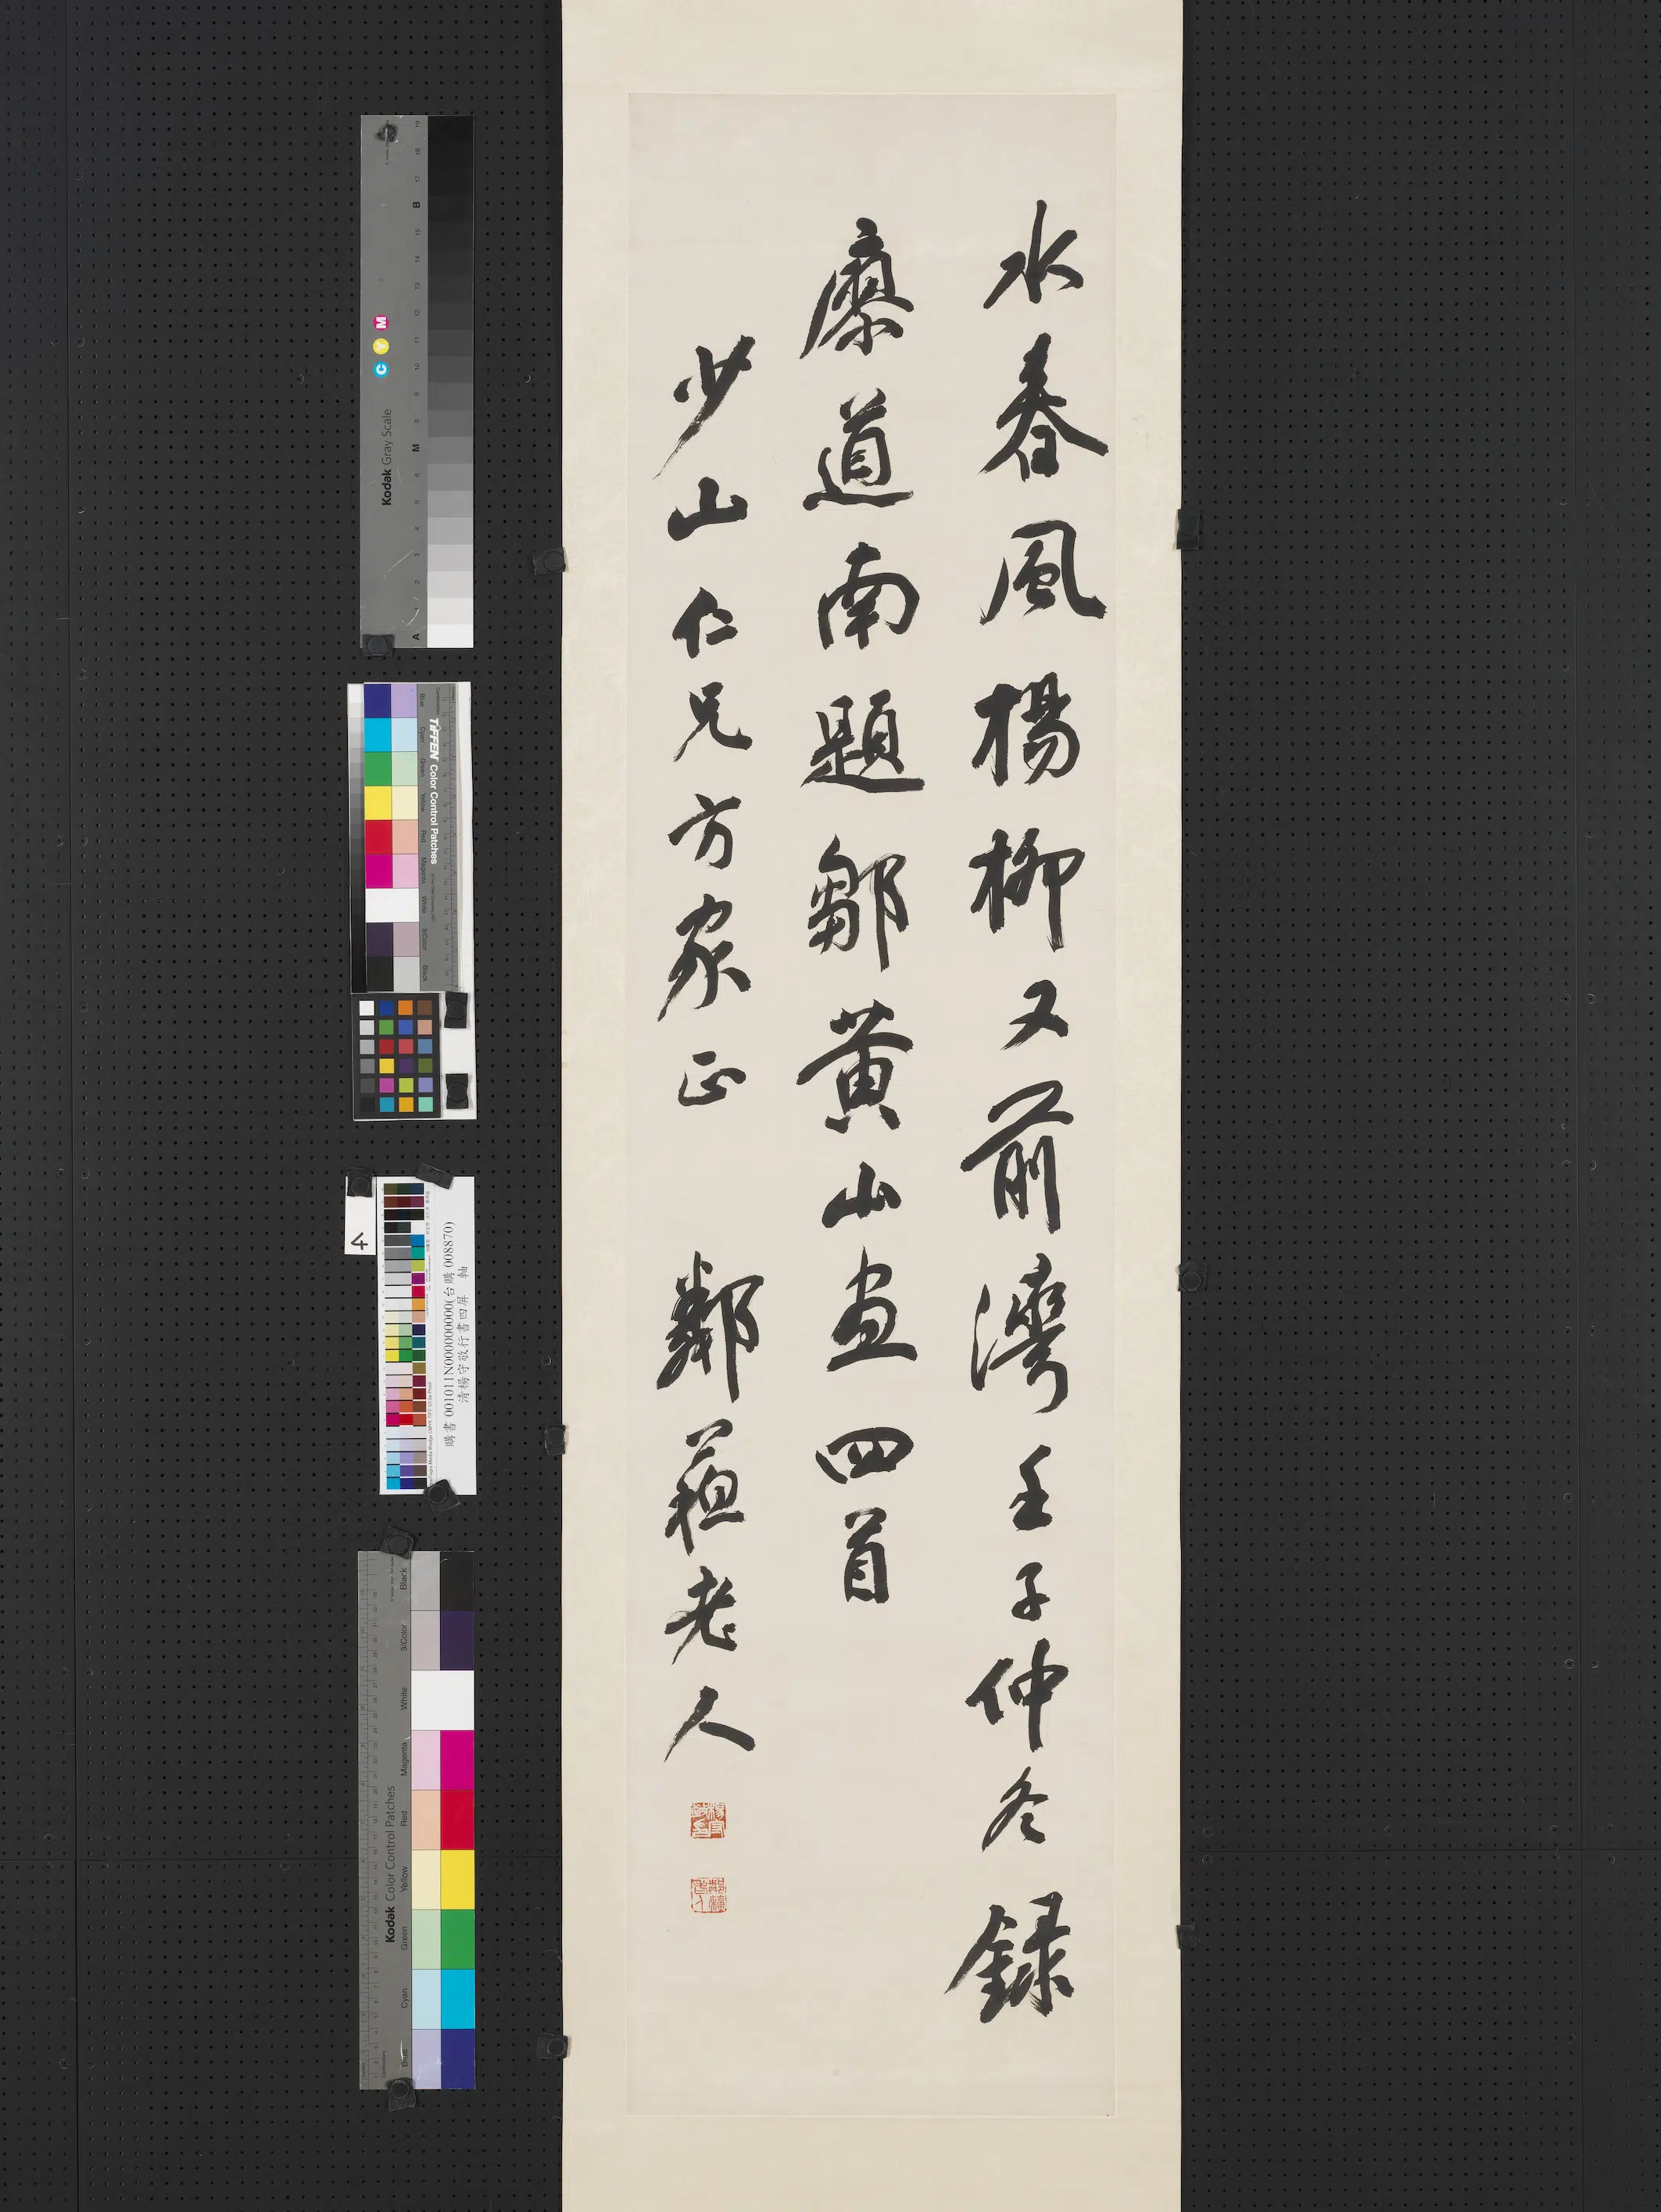 水春風楊柳又前灣壬子仲冬錄
廖道南題鄒黃山畫四首
少山仁兄方家正 鄰蘇老人
楊守敬印
鄰蘇老人
Kodak Gray Scale
C Y M
A 1 2 3 4 5 6 M 8 9 10 11 12 13 14 15 B 17 18 19
TIFFEN Color Control Patches
Blue Cyan Green Yellow Red Magenta White 3/Color Black
4
購書 001011N000000000(台購 008870)
清楊守敬行書四屏 軸
Kodak Color Control Patches
Blue Cyan Green Yellow Red Magenta White 3/Color Black